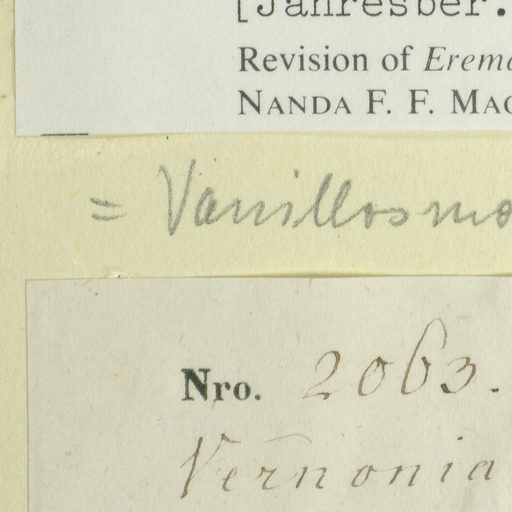 [Jahresber.
Revision of Erem
NANDA F. F. MAC
= Vanillosmo
Nro. 2063.
Vernonia